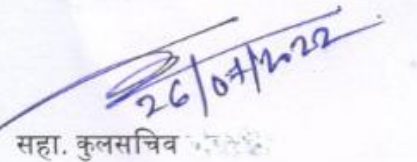 26/07/2022
सहा. कुलसचिव